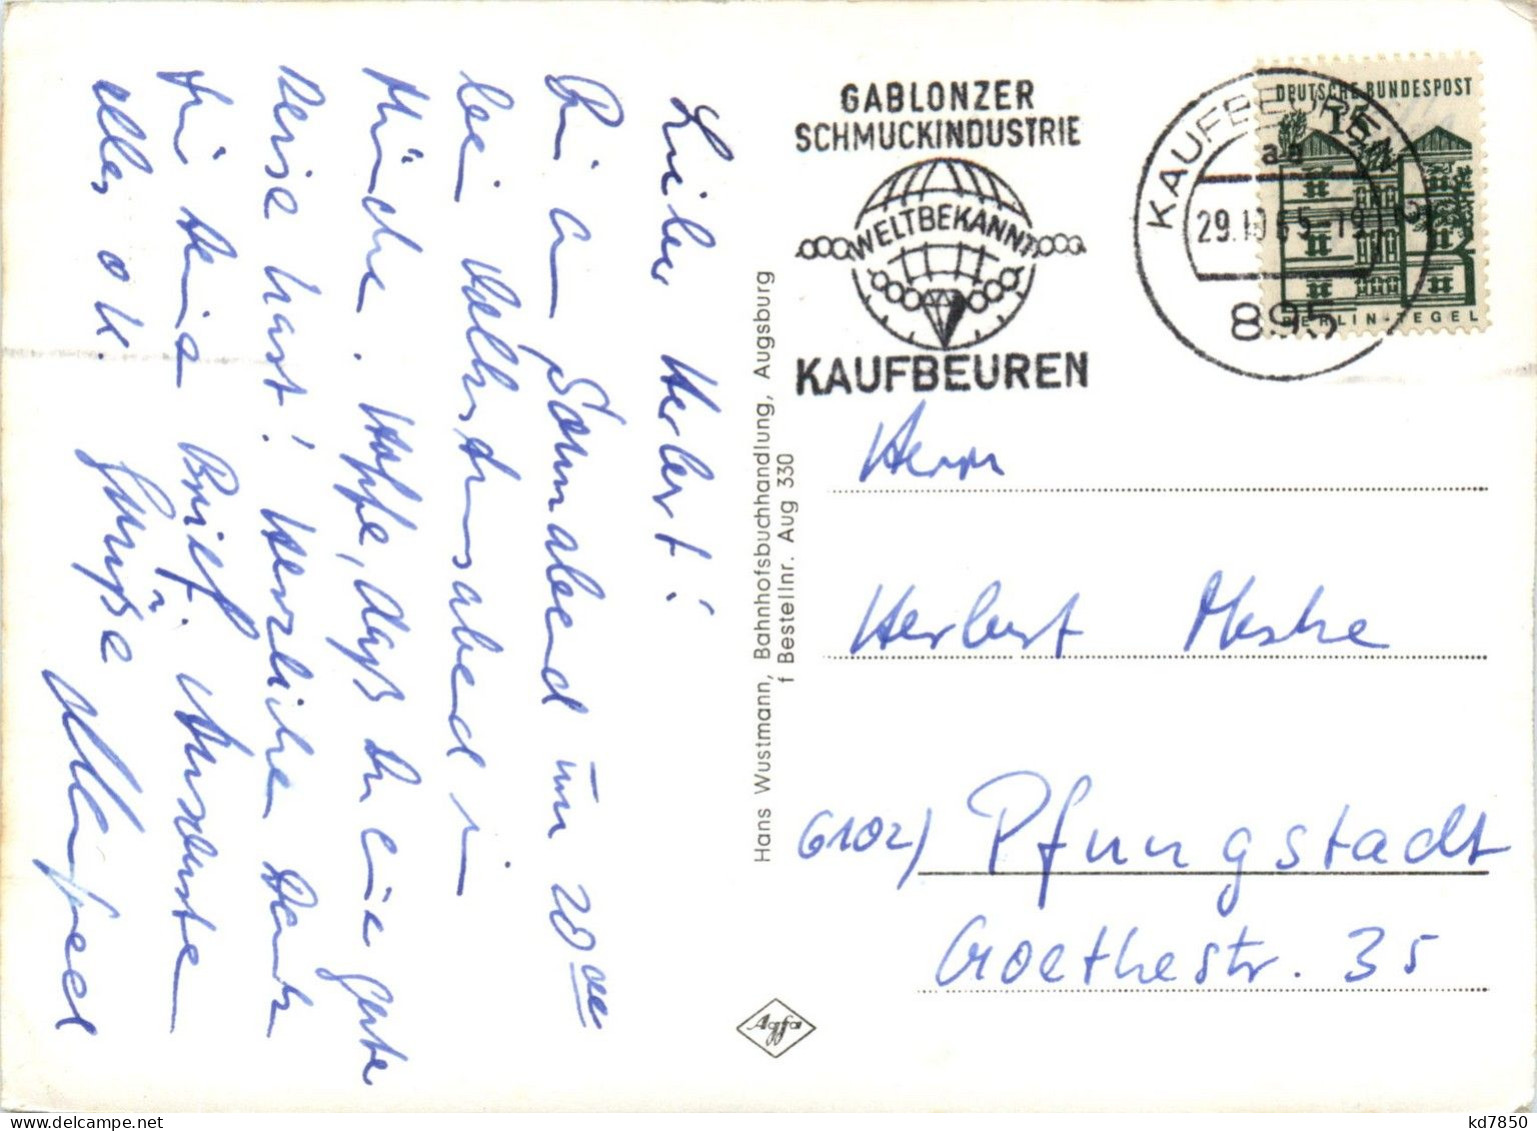 Lieber Herbert!
Bin am Sonnabend um 20 00
bei
München. Hoffe, daß Du eine gute
Reise hast! Herzlichen Dank
für Deinen Brief.
alles o.k. Grüße Manfred
GABLONZER
SCHMUCKINDUSTRIE
WELTBEKANNT
KAUFBEUREN
KAUFBEUREN
aa
29.10.65-19
895
DEUTSCHE BUNDESPOST
15
BERLIN-TEGEL
Hans Wustmann, Bahnhofsbuchhandlung, Augsburg
f Bestellnr. Aug 330
Herrn
Herbert
6102) Pfungstadt
Goethestr. 35
Agfa
kd7850